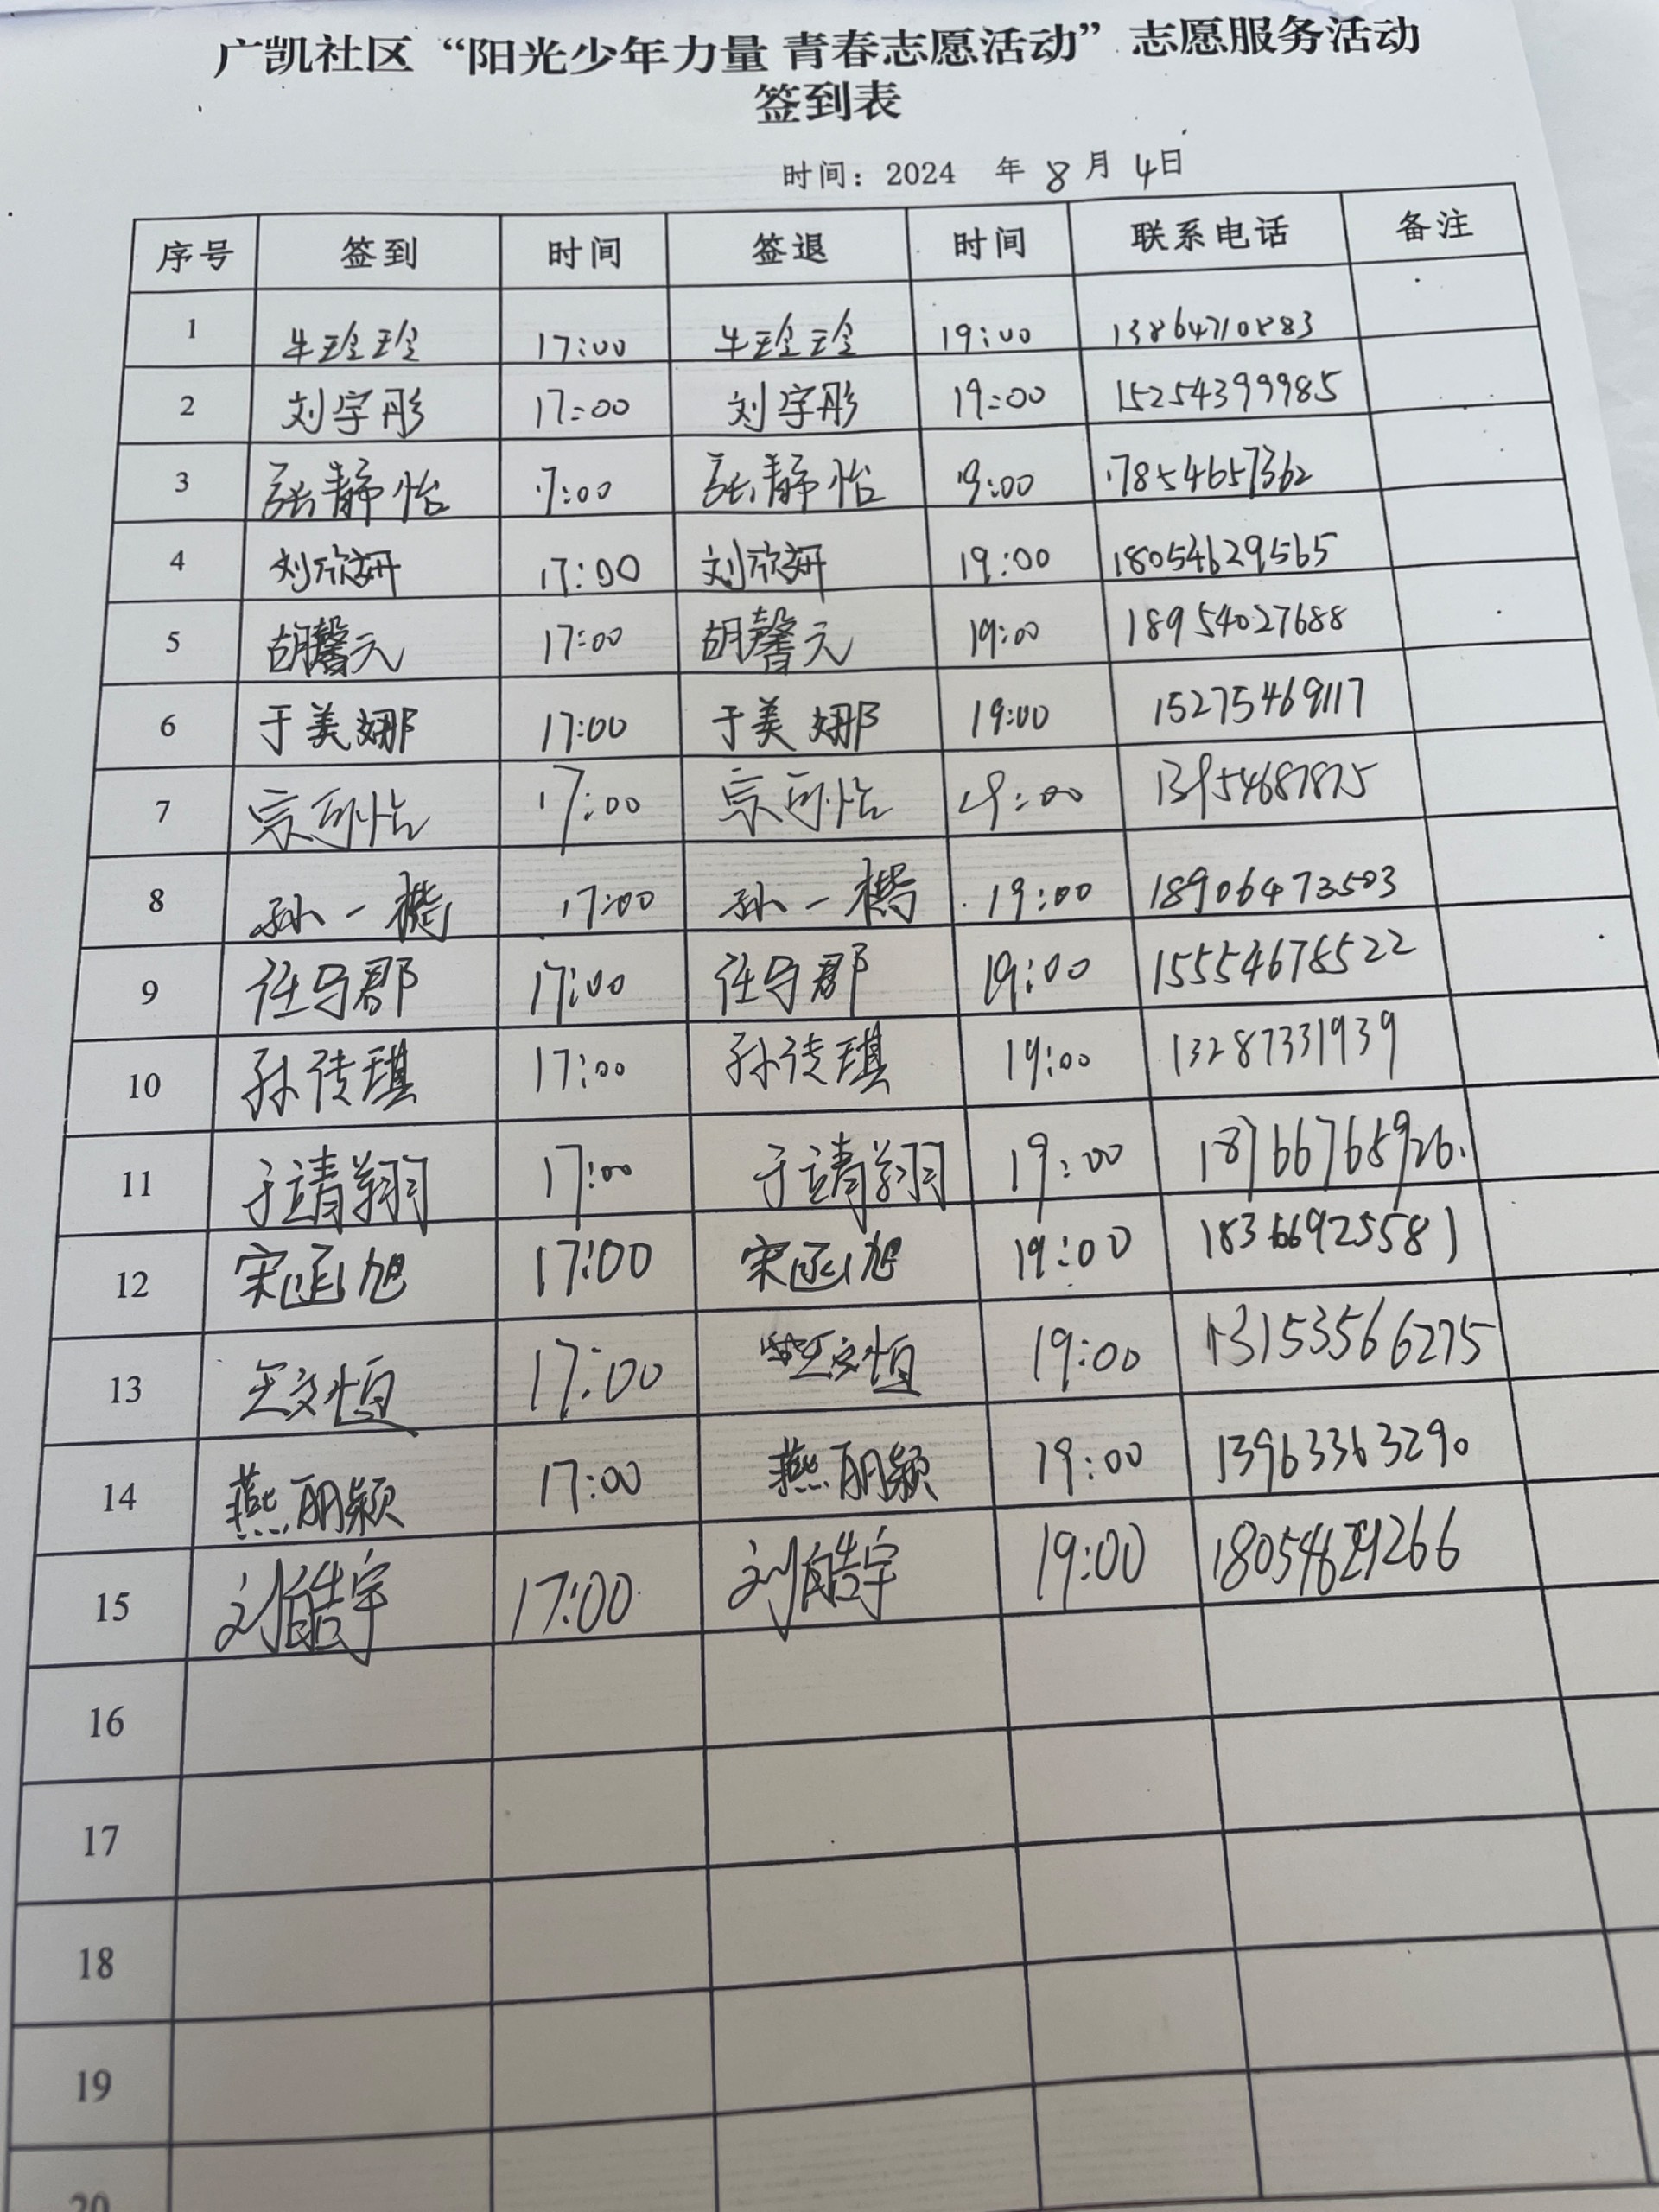 广凯社区“阳光少年力量 青春志愿活动”志愿服务活动
签到表
时间：2024 年 8 月 4日
序号 签到 时间 签退 时间 联系电话 备注
1 牛玲玲 17:00 牛玲玲 19:00 13864710883
2 刘宇彤 17:00 刘宇彤 19:00 15254399985
3 张静怡 17:00 张静怡 19:00 17854657362
4 刘欣妍 17:00 刘欣妍 19:00 18054629565
5 胡馨元 17:00 胡馨元 19:00 18954027688
6 于美娜 17:00 于美娜 19:00 15275469117
7 宗可怡 17:00 宗可怡 19:00 13954687875
8 孙一 17:00 孙一 19:00 18906473503
9 任守郡 17:00 任守郡 19:00 15554678522
10 孙传琪 17:00 孙传琪 19:00 13287331939
11 于靖翔 17:00 于靖翔 19:00 18766765926.
12 宋函旭 17:00 宋函旭 19:00 18366925581
13 王文恒 17:00 王文恒 19:00 13153566275
14 燕丽颖 17:00 燕丽颖 19:00 13963363290
15 刘皓宇 17:00 刘皓宇 19:00 18054629266
16
17
18
19
20